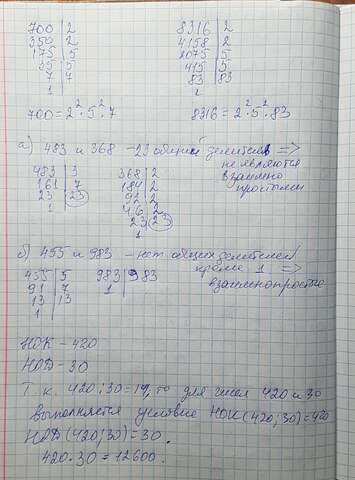 700 | 2
350 | 2
175 | 5
35 | 5
7 | 7
1
700 = 2²·5²·7
8316 | 2
4158 | 2
2075 | 5
415 | 5
83 | 83
1
8316 = 2²·5²·83
а) 483 и 368 – 23 общий делитель =>
не являются
взаимно
простыми
483 | 3
161 | 7
23 | 23
1
368 | 2
184 | 2
92 | 2
46 | 2
23 | 23
1
б) 455 и 983 – нет общих делителей
кроме 1 =>
взаимнопростые
455 | 5
91 | 7
13 | 13
1
983 | 983
1
НОК – 420
НОД – 30
Т к. 420:30=14, то для чисел 420 и 30
выполняется условие НОК(420;30)=420
НОД(420;30)=30.
420·30=12600.